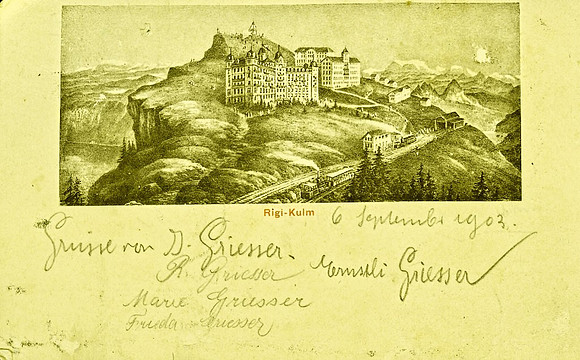 Rigi-Kulm
6 September 1903.
Grüsse von D. Griesser.
R. Griesser
Ernstli Griesser
Marie Griesser
Frieda Griesser